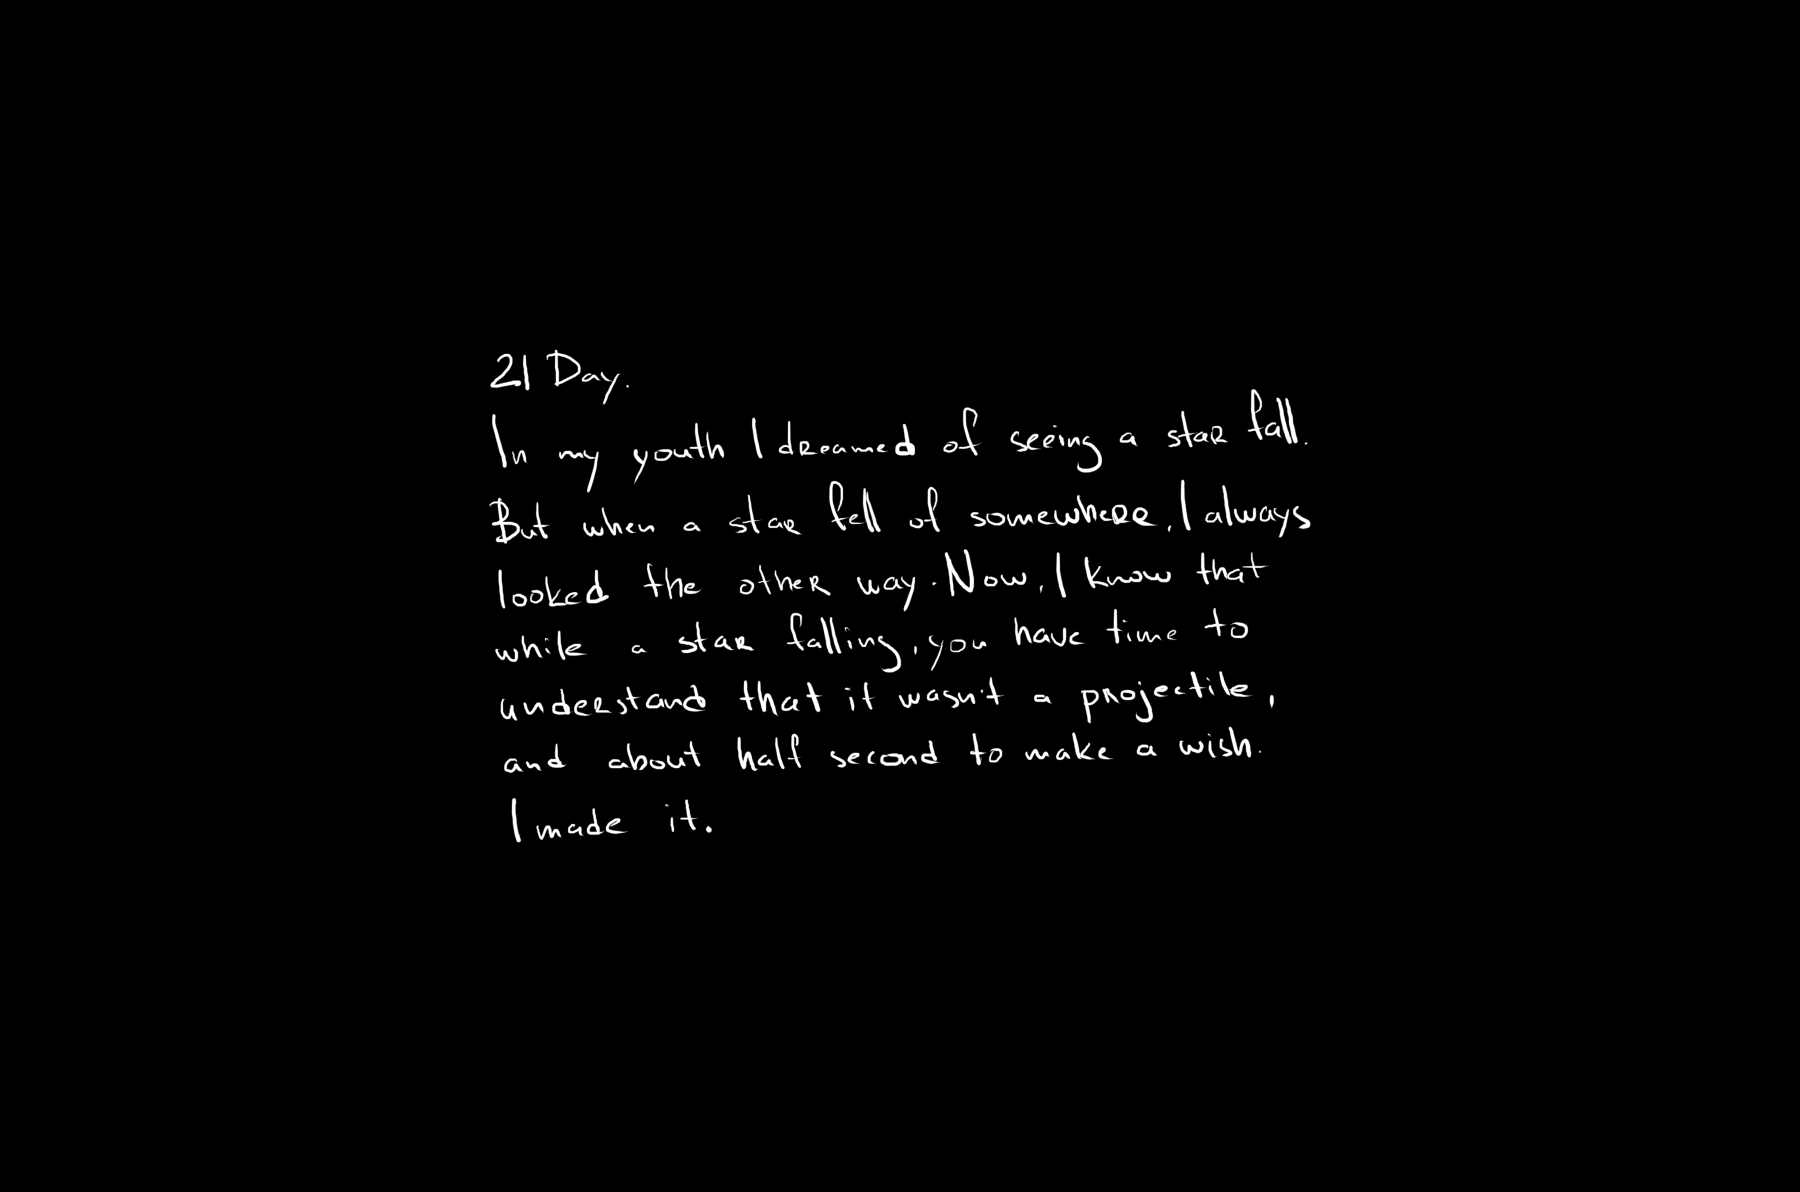 21 Day.
In my youth I dreamed of seeing a star fall.
But when a star fell of somewhere, I always
looked the other way. Now, I know that
while a star falling, you have time to
understand that it wasn't a projectile,
and about half second to make a wish.
I made it.